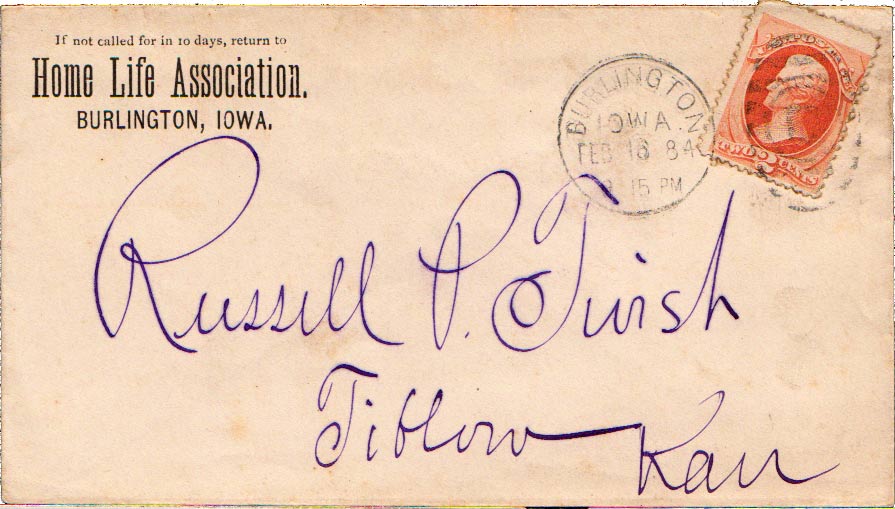 If not called for in 10 days, return to
Home Life Association.
BURLINGTON, IOWA.
BURLINGTON
IOWA.
FEB 16 84
15 PM
CENTS
Russell P. Twish
Tiblow Kan